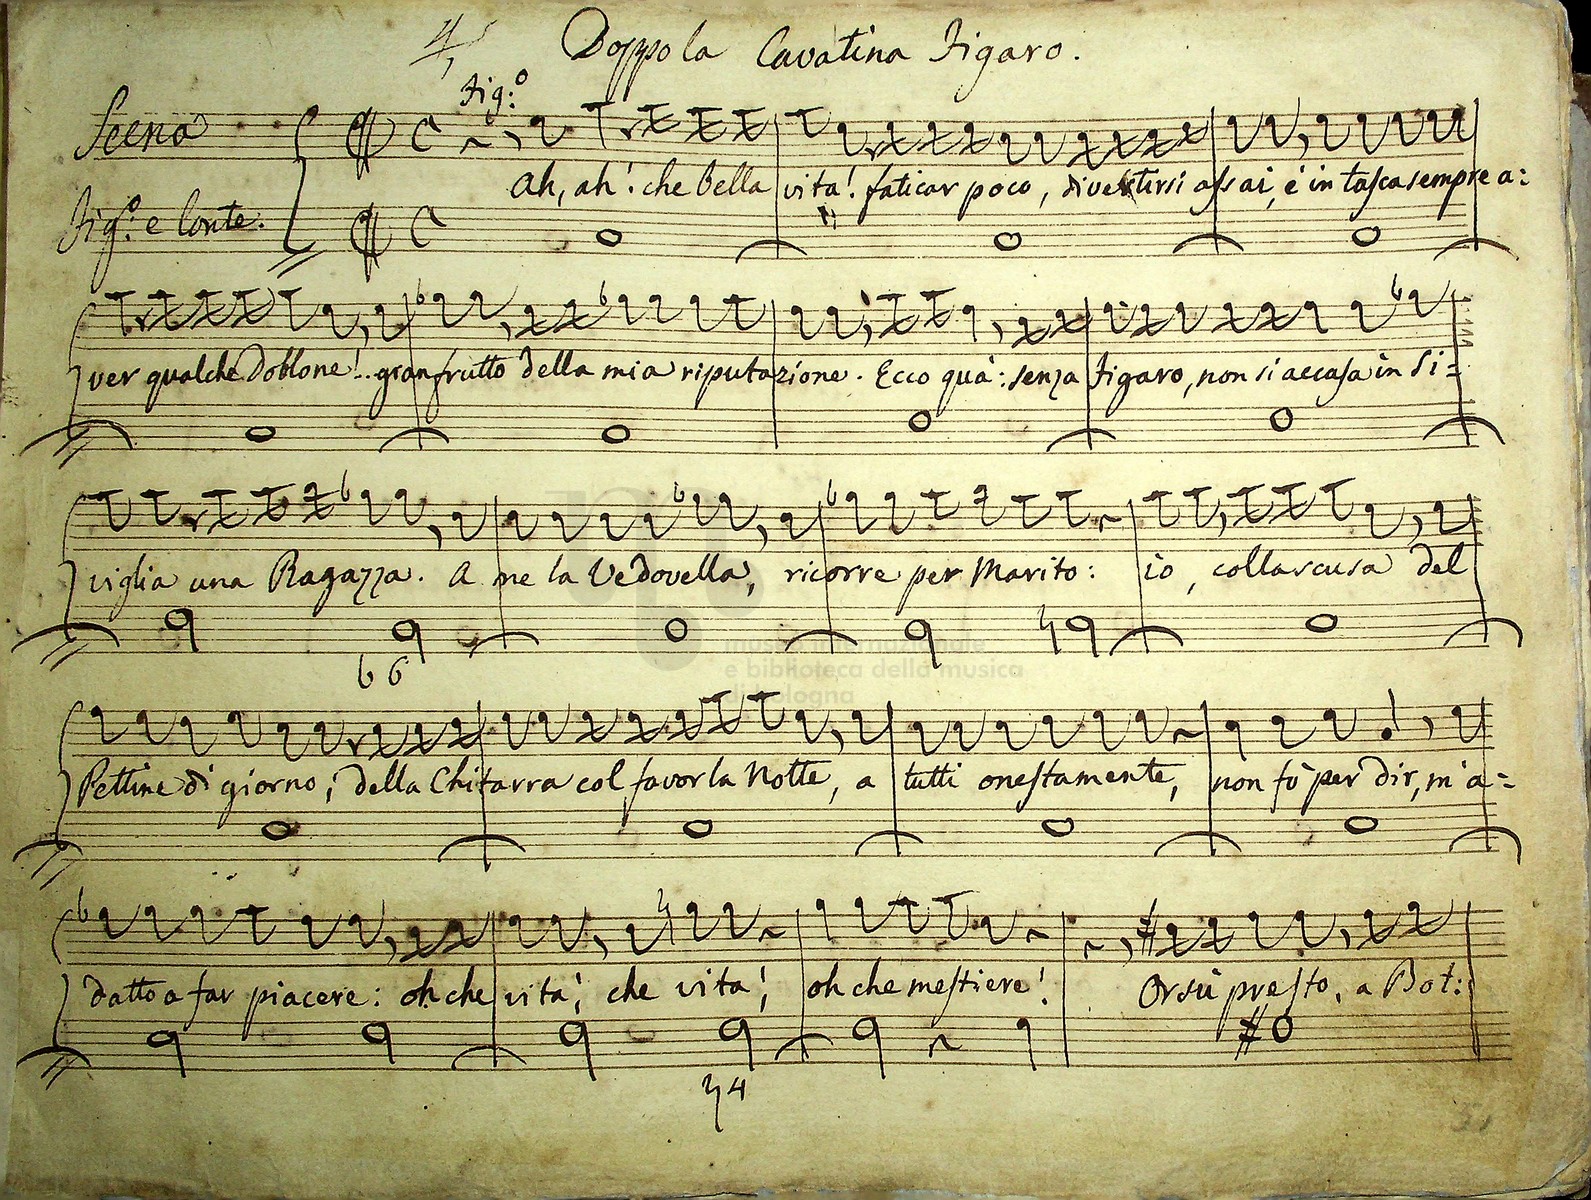 4
Doppo la Cavatina Figaro.
Fig:º
Scena
Ah, ah! che bella vita! faticar poco, divertirsi assai, e in tasca sempre a:
Fig:º e Conte.
ver qualche Doblone!.. gran frutto della mia riputazione. Ecco quà: senza Figaro, non si accasa in Si=
viglia una Ragazza. A me la Vedovella, ricorre per Marito: io, colla scusa del
b 6
museo internazionale
e biblioteca della musica
di bologna
Pettine di giorno; della Chitarra col favor la Notte, a tutti onestamente, non fò per dir, m'a=
datto a far piacere: oh che vita! che vita! oh che mestiere! Orsù presto, a Bot:
♮4